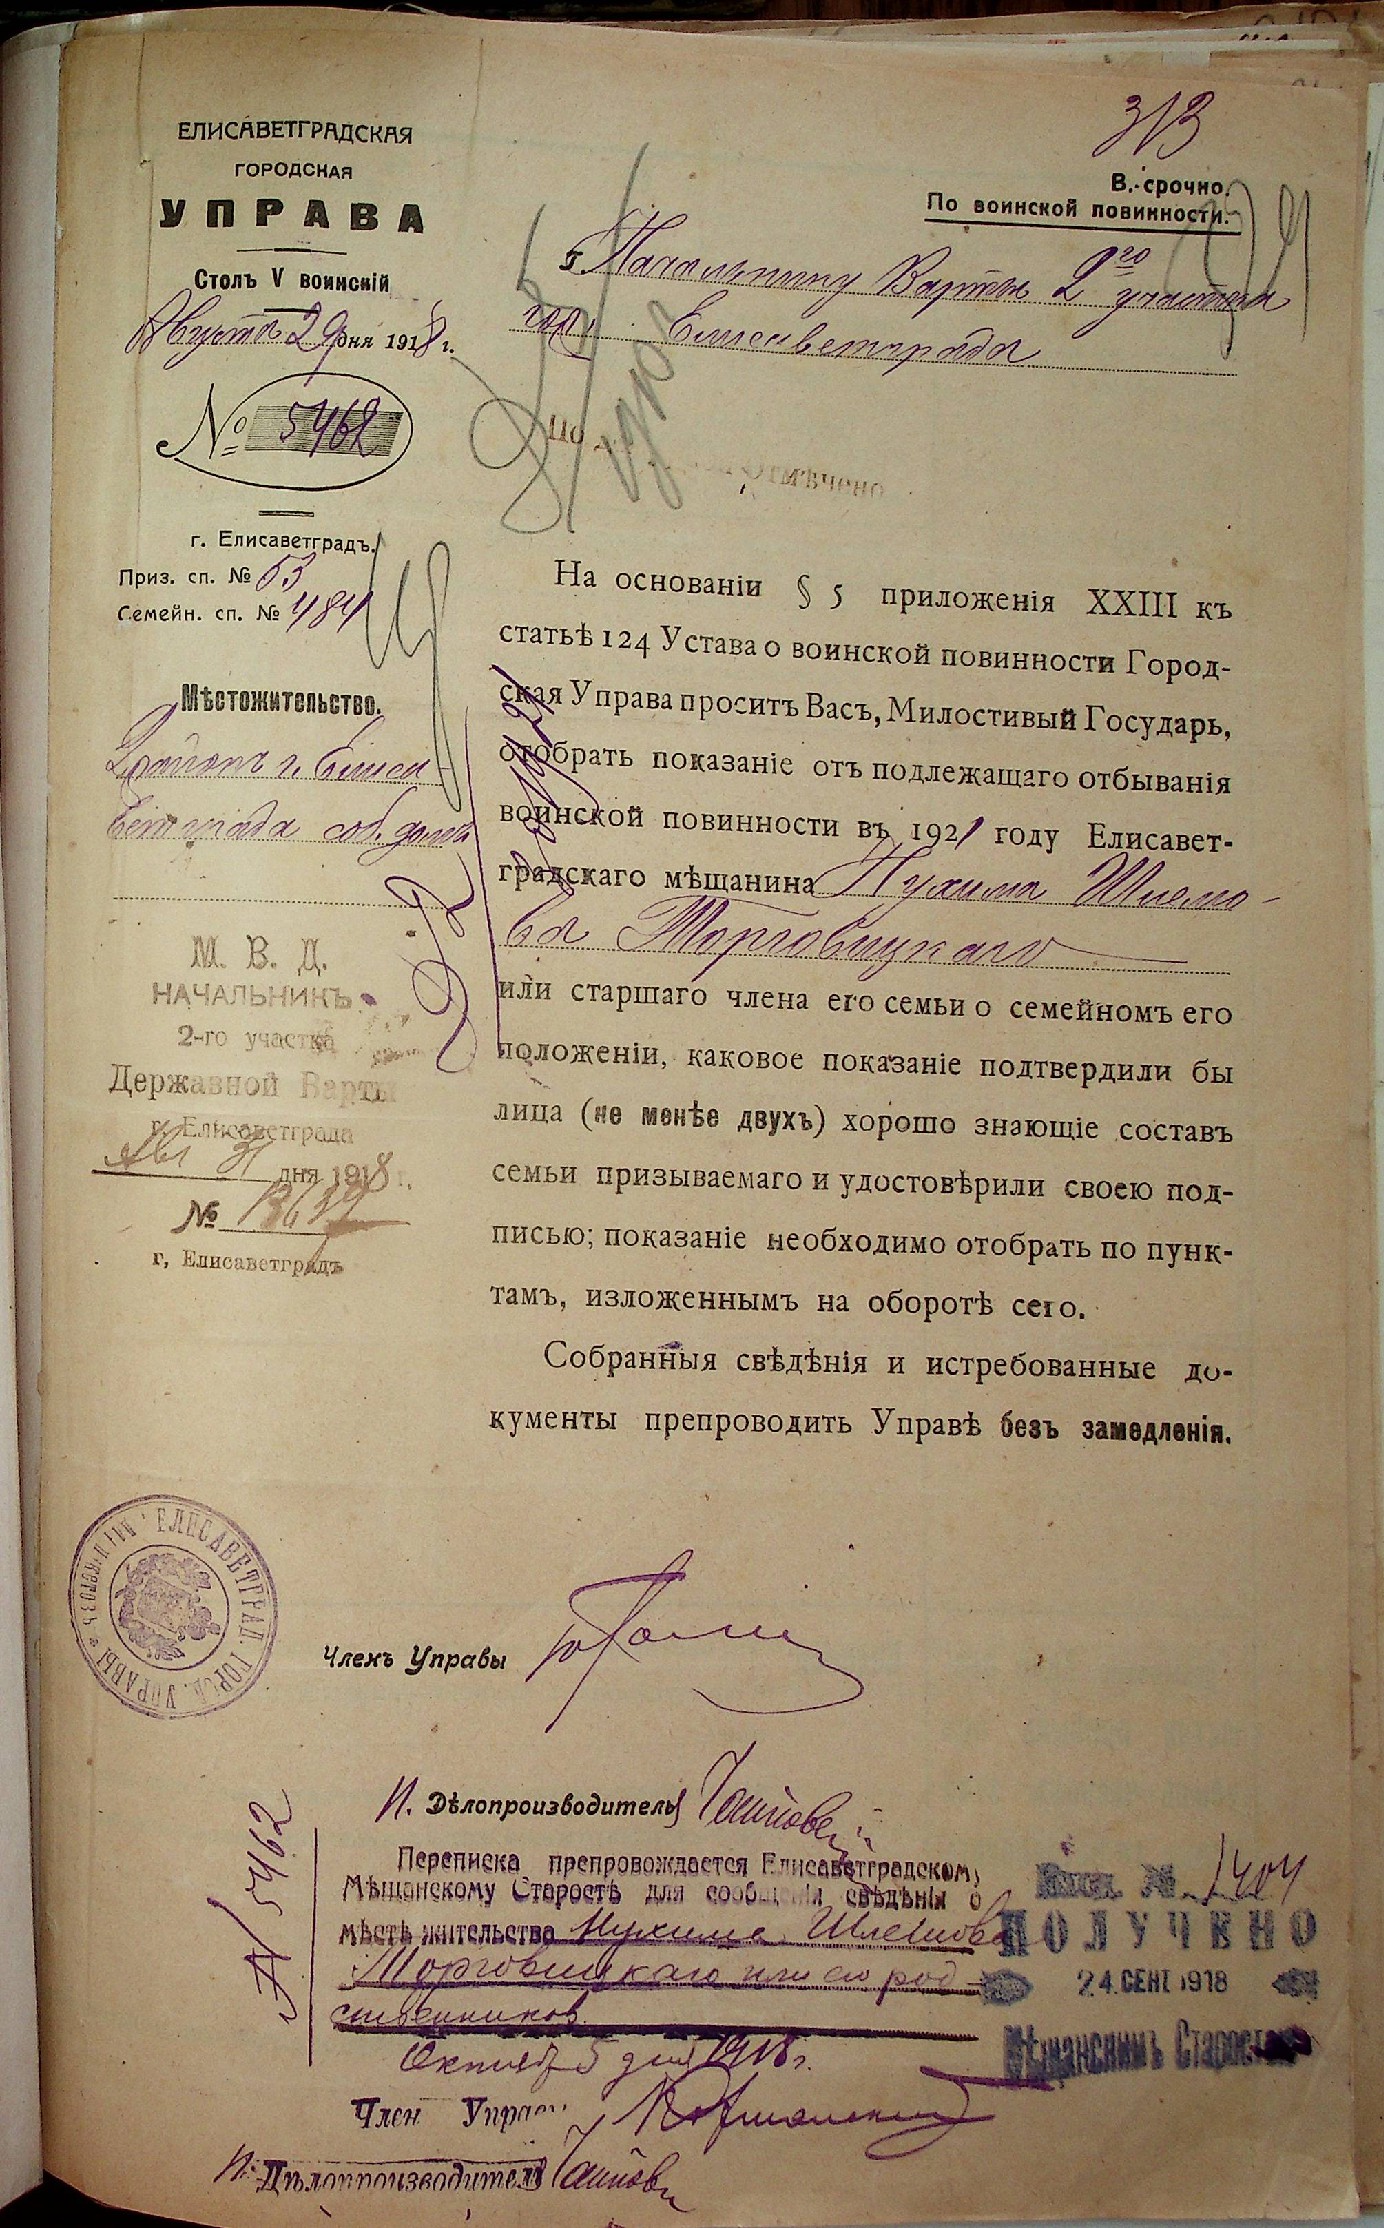 313
ЕЛИСАВЕТГРАДСКАЯ
ГОРОДСКАЯ
УПРАВА
Столъ V воинскій
Августа 29 дня 1918 г.
№ 5462
г. Елисаветградъ.
Приз. сп. № 53
Семейн. сп. № 484
Мѣстожительство.
2 г. Елиса
ветграда соб. домъ
М. В. Д.
НАЧАЛЬНИКЪ
2-го участка
Державной Варты
г. Елисаветграда
Авг 31 дня 1918 г.
№
г, Елисаветградъ
В.-срочно.
По воинской повинности.
Начальнику Варты 2го участка
гор. Елисаветграда
По
Отмѣчено
На основаніи § 5 приложенія XXIII къ
статьѣ 124 Устава о воинской повинности Город-
ская Управа проситъ Васъ, Милостивый Государь,
отобрать показаніе отъ подлежащаго отбыванія
воинской повинности въ 1921 году Елисавет-
градскаго мѣщанина Нухима Шлемо-
ва Торговицкаго
или старшаго члена его семьи о семейномъ его
положеніи, каковое показаніе подтвердили бы
лица (не менѣе двухъ) хорошо знающіе составъ
семьи призываемаго и удостовѣрили своею под-
писью; показаніе необходимо отобрать по пунк-
тамъ, изложеннымъ на оборотѣ сего.
Собранныя свѣдѣнія и истребованные до-
кументы препроводить Управѣ безъ замедленія.
ЕЛИСАВЕТГРАД. ГОРОД. УПРАВЫ
Членъ Управы
И. Дѣлопроизводителя
№ 5462
Переписка препровождается Елисаветградскому
Мѣщанскому Старостѣ для сообщенія свѣдѣнія о
мѣстѣ жительства Нухима Шлемова
Торговицкаго или его род-
ственников
Октября 5 дня 1918 г.
Член Управы
И. Дѣлопроизводитель
Вход. № 1404
ПОЛУЧЕНО
24. СЕНТ 1918
Мѣщанскимъ Старостою